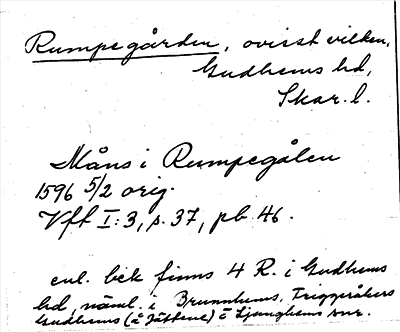 Rumpegården, ovisst vilken,
Gudhems hd,
Skar. l.
Måns i Rumpegålen
1596 5/2 orig.
Vft I:3, s. 37, pb 46.
enl. bek finns 4 R. i Gudhems
hd, näml. i Brunnhems, Friggeråkers
Gudhems (å Jättene) o Ljunghems snr.